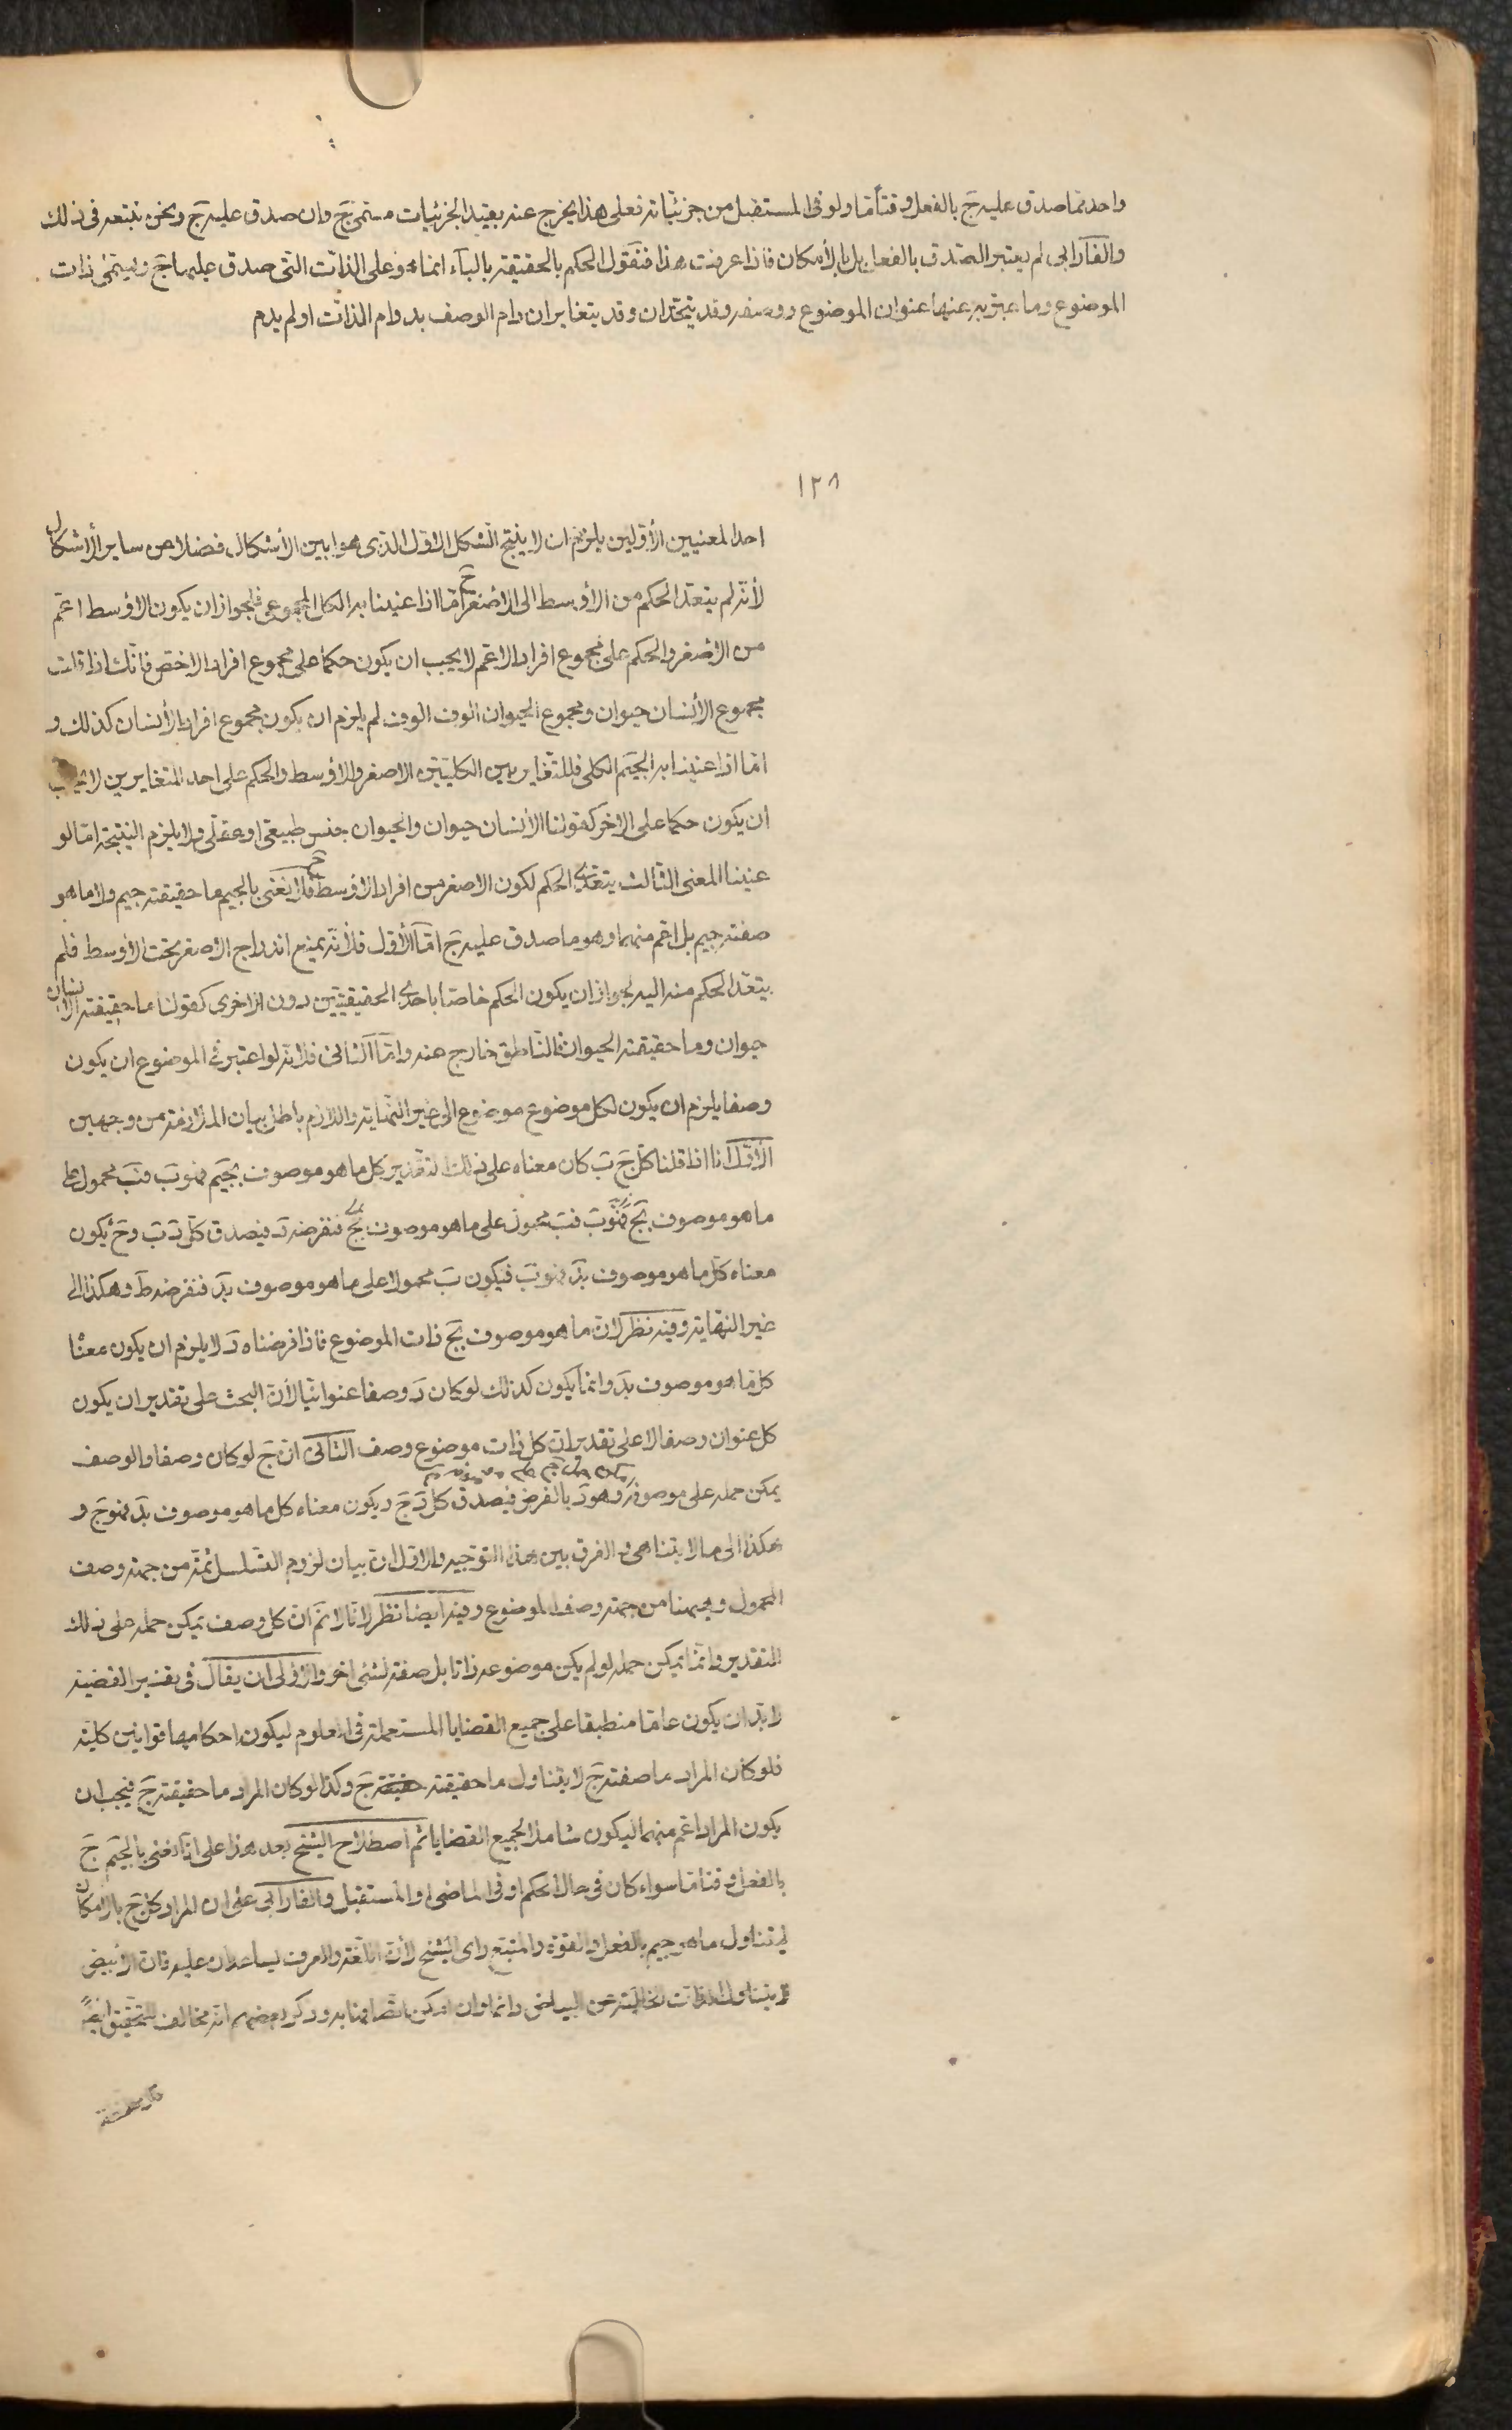 واحد مما صدق عليه جَ بالفعل وقتاً مّا ولو فى المستقبل من جزئياته فعلى هذا يخرج عنه بقيد الجزئيات مسمّى جَ وان صدق عليه جَ ونحن نتبعه فى ذلك
والفارابى لم يعتبر الصدق بالفعل بل بالأمكان فاذا عرفت هذا فنقول الحكم بالحقيقة بالباء انما هو على الذات التى صدق عليها جَ ويسمّى ذات
الموضوع وما عبّر به عنها عنوان الموضوع ووصفه وقد يتحدان وقد يتغايران دام الوصف بدوام الذات او لم يدم
١٢٨
احد المعنيين الأوّلين يلزم ان لا ينتج الشكل الاوّل الذى هو ابين الأشكال فضلا عن ساير الأشكال
لأنّه لم يتعدّ الحكم من الأوسط الى الاصغر ح امّا اذا عنينا به الكل المجموعى فلجواز ان يكون الاوسط اعمّ
من الاصغر والحكم على مجموع افراد الاعم لا يجب ان يكون حكما على مجموع افراد الاخصّ فانّك اذا قلت
مجموع الأنسان حيوان ومجموع الحيوان الوف الوف لم يلزم ان يكون مجموع افراد الأنسان كذلك و
امّا اذا عنينا به الجيم الكلى فللتغاير بين الكليتين الاصغر والاوسط والحكم على احد المتغايرين لا يجب
ان يكون حكما على الاخر كقولنا الأنسان حيوان والحيوان جنس طبيعى او عقلى ولا يلزم النتيجة امّا لو
عنينا المعنى الثالث يتعدّى الحكم لكون الاصغر من افراد الاوسط ح فلا نعنى بالجيم ما حقيقته جيم ولا ما هو
صفته جيم بل اعم منهما وهو ما صدق عليه جَ امّا الأوّل فلأنّه يمنع اندراج الاصغر تحت الأوسط فلم
يتعدّ الحكم منه اليه لجواز ان يكون الحكم خاصّا باحدى الحقيقيتين دون الاخرى كقولنا ما حقيقته الانسان
حيوان وما حقيقته الحيوان فالناطق خارج عنه وامّا الثانى فلانّه لو اعتبر فى الموضوع ان يكون
وصفا يلزم ان يكون لكل موضوع موضوع الى غير النهاية واللازم باطل بيان الملازمة من وجهين
الأوّل انا اذا قلنا كلّ جَ بَ كان معناه على ذلك التقدير كل ما هو موصوف بجيم فهو بَ فبَ محمول على
ما هو موصوف بجَ فهو بَ فبَ محمول على ما هو موصوف بجَ فنفرضه دَ فيصدق كلّ دَ بَ وحَ يكون
معناه كلّ ما هو موصوف بدَ فهو بَ فيكون بَ محمولا على ما هو موصوف بدَ فنفرضه طَ وهكذا الى
غير النهاية وفيه نظر لانّ ما هو موصوف بجَ ذات الموضوع فاذا فرضناه دَ لا يلزم ان يكون معنا
كلّ ما هو موصوف بدَ وانّما يكون كذلك لو كان دَ وصفا عنوانيّا لأنّ البحث على تقدير ان يكون
كل عنوان وصفا لا على تقدير ان كل ذات موضوع وصف الثانى انّ جَ لو كان وصفا والوصف
يمكن حمله على موصوفه وهو دَ بالفرض فيصدق كلّ دَ جَ ويكون معناه كل ما هو موصوف بدَ فهو جَ و
هكذا الى ما لا يتناهى والفرق بين هذا التوجيه والاوّل انّ بيان لزوم التسلسل ثمّة من جهة وصف
المحمول وههنا من جهة وصف الموضوع وفيه ايضا نظر لانّا لا نم انّ كل وصف يمكن حمله على ذلك
التقدير وانّما يمكن حمله لو لم يكن موضوعه ذاتا بل صفة لشئ اخر والاولى ان يقال فى تفسير القضية
لا بدّ ان يكون عامّا منطبقا على جميع القضايا المستعملة فى العلوم ليكون احكامها قوانين كليّة
فلو كان المراد ما صفته جَ لا يتناول ما حقيقته حقيقة جَ وكذا لو كان المراد ما حقيقته جَ فيجب ان
يكون المراد اعم منهما ليكون شاملا لجميع القضايا ثم اصطلاح الشيخ بعد هذا على انّا نعنى بالجيم جَ
بالفعل وقتا مّا سواء كان فى حال الحكم او فى الماضى او المستقبل والفارابى على ان المراد كل جَ بالامكان
ليتناول ما هو جيم بالفعل والقوة والمتبع راى الشيخ لأنّ اللّغة والعرف يساعدان عليه فانّ الأبيض
لا يتناول الذات الخالية عن البياض دائما وان امكن اتصافها به وذكر بعضهم انّه مخالف للتحقيق ايضً